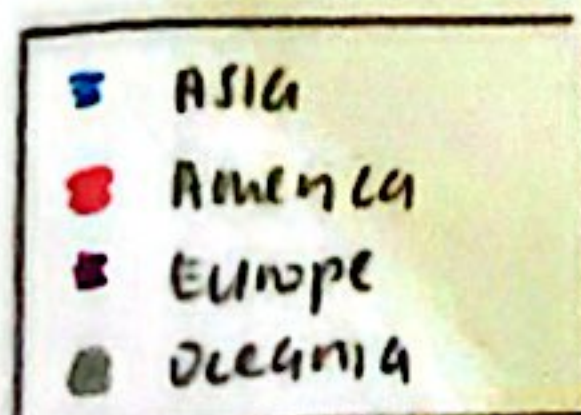 ASIA
America
Europe
Oceania